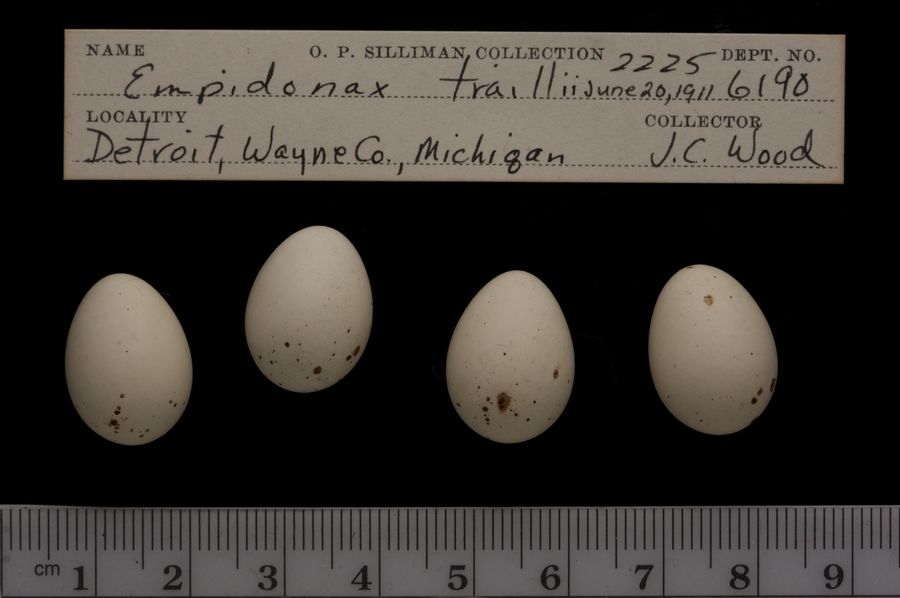 NAME O. P. SILLIMAN COLLECTION 2225 DEPT. NO.
Empidonax traillii June 20, 1911 6190
LOCALITY COLLECTOR
Detroit, Wayne Co., Michigan J.C. Wood
cm 1 2 3 4 5 6 7 8 9